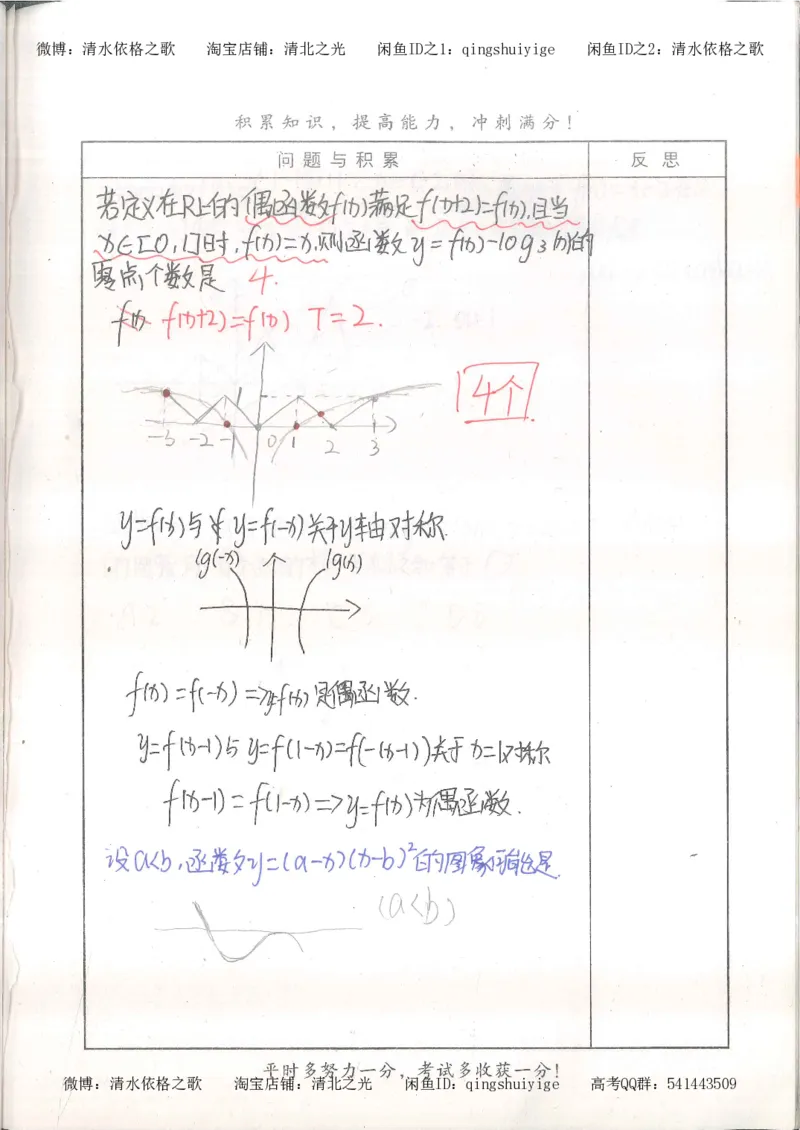 微博：清水依格之歌 淘宝店铺：清北之光 闲鱼ID之1：qingshuiyige 闲鱼ID之2：清水依格之歌
积累知识，提高能力，冲刺满分！
问题与积累 反思
若定义在R上的偶函数f(x)满足f(x+2)=f(x),且当
x∈[0,1]时,f(x)=x,则函数y=f(x)-log3|x|的
零点个数是 4.
f(x+2)=f(x) T=2.
1
4个
-3 -2 -1 0 1 2 3
y=f(x)与y=f(-x)关于y轴由对称
lg(-x) lg(x)
f(x)=f(-x)=>y=f(x)是偶函数.
y=f(x-1)与y=f(1-x)=f(-(x-1))关于x=1对称
f(x-1)=f(1-x)=>y=f(x)为偶函数.
设a<b,函数y=(a-x)(x-b)²的图象可能是
(a<b)
平时多努力一分，考试多收获一分！
微博：清水依格之歌 淘宝店铺：清北之光 闲鱼ID：qingshuiyige 高考QQ群：541443509